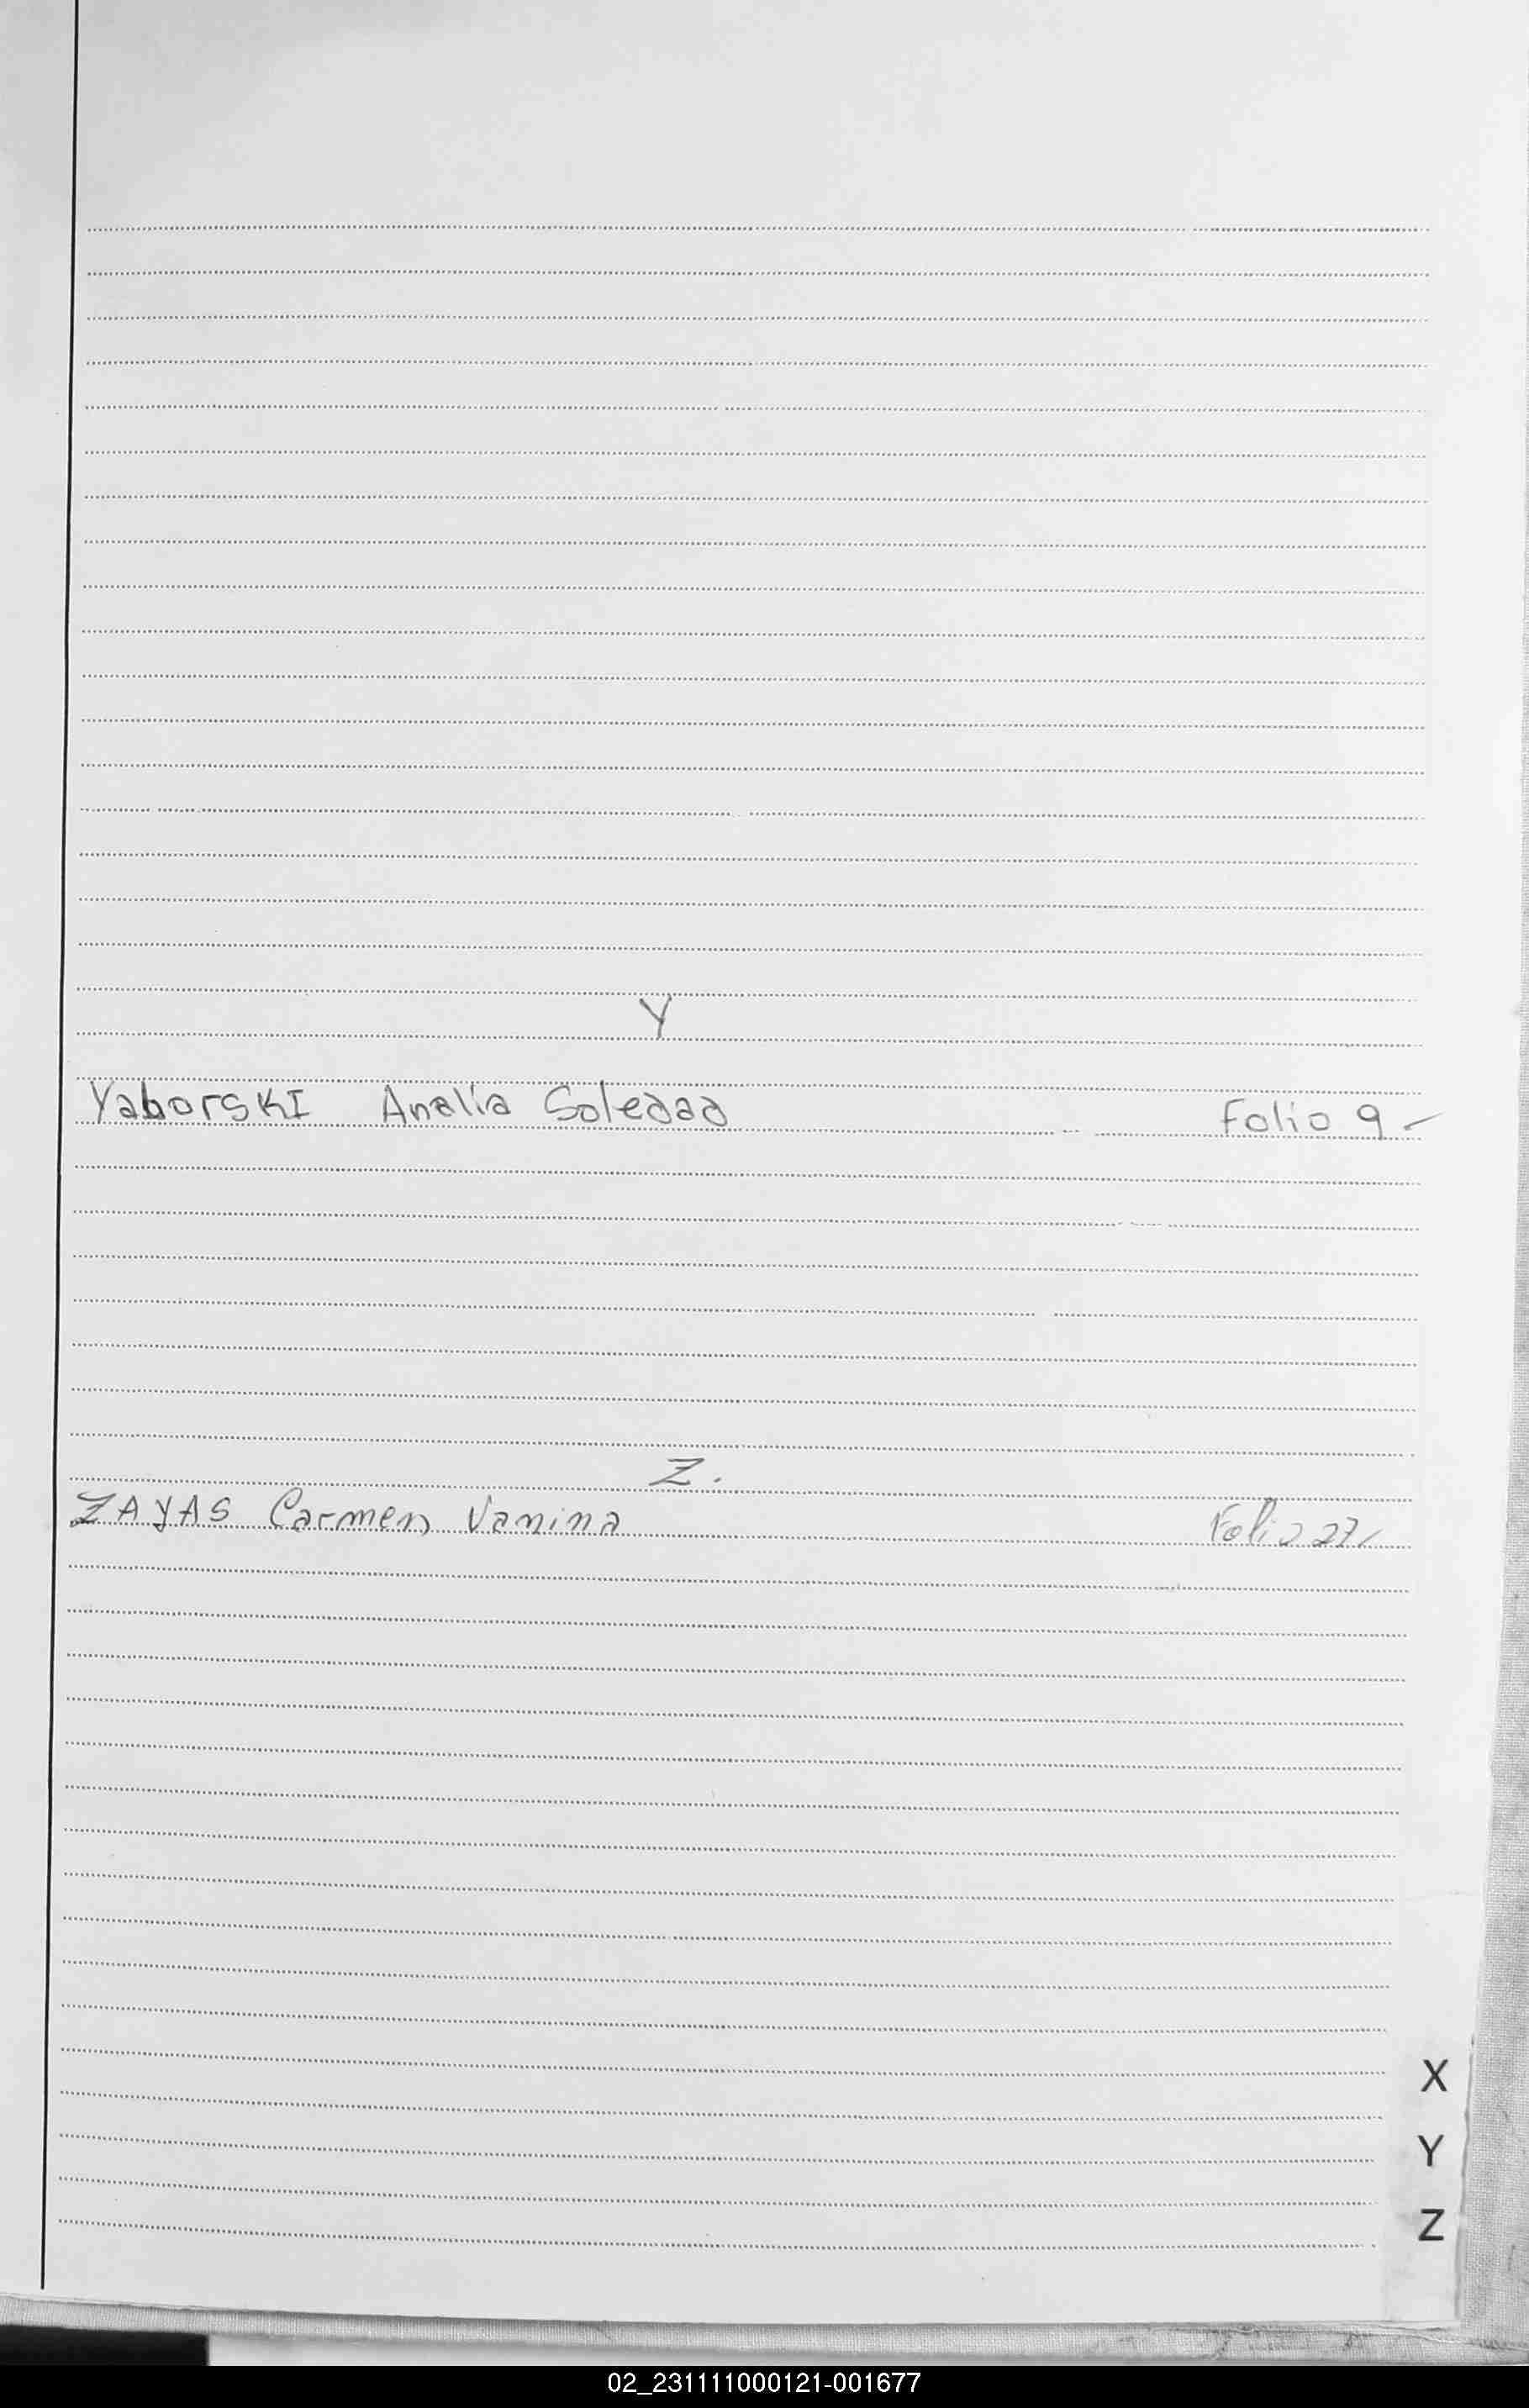 Y
Yaborski Analía Soledad Folio 9-
Z.
ZAYAS Carmen Vanina Folio 27/
X
Y
Z
02_231111000121-001677